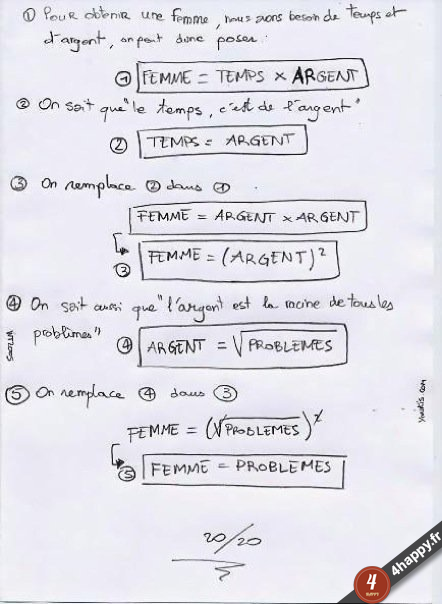 ① Pour obtenir une femme, nous avons besoin de temps et
d'argent, on peut donc poser :
① FEMME = TEMPS × ARGENT
② On sait que "le temps, c'est de l'argent"
② TEMPS = ARGENT
③ On remplace ② dans ①
FEMME = ARGENT × ARGENT
③ FEMME = (ARGENT)²
④ On sait aussi que "l'argent est la racine de tous les
problèmes"
④ ARGENT = √PROBLEMES
⑤ On remplace ④ dans ③
FEMME = (√PROBLEMES)²
⑤ FEMME = PROBLEMES
20/20
4
HAPPY
4happy.fr